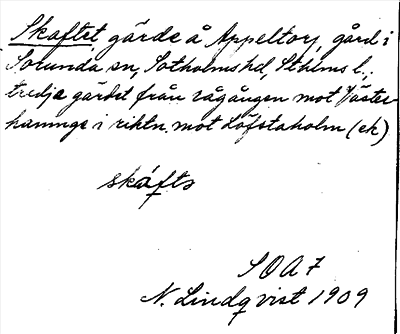 Skaftet, gärde å Appeltorp, gård i
Sorunda sn, Sotholms hd, Sthlms l.,
tredje gärdet från rågången mot Väster-
haninge i riktn. mot Löfstaholm (ek)
skáfts
SOA 7
N. Lindqvist 1909